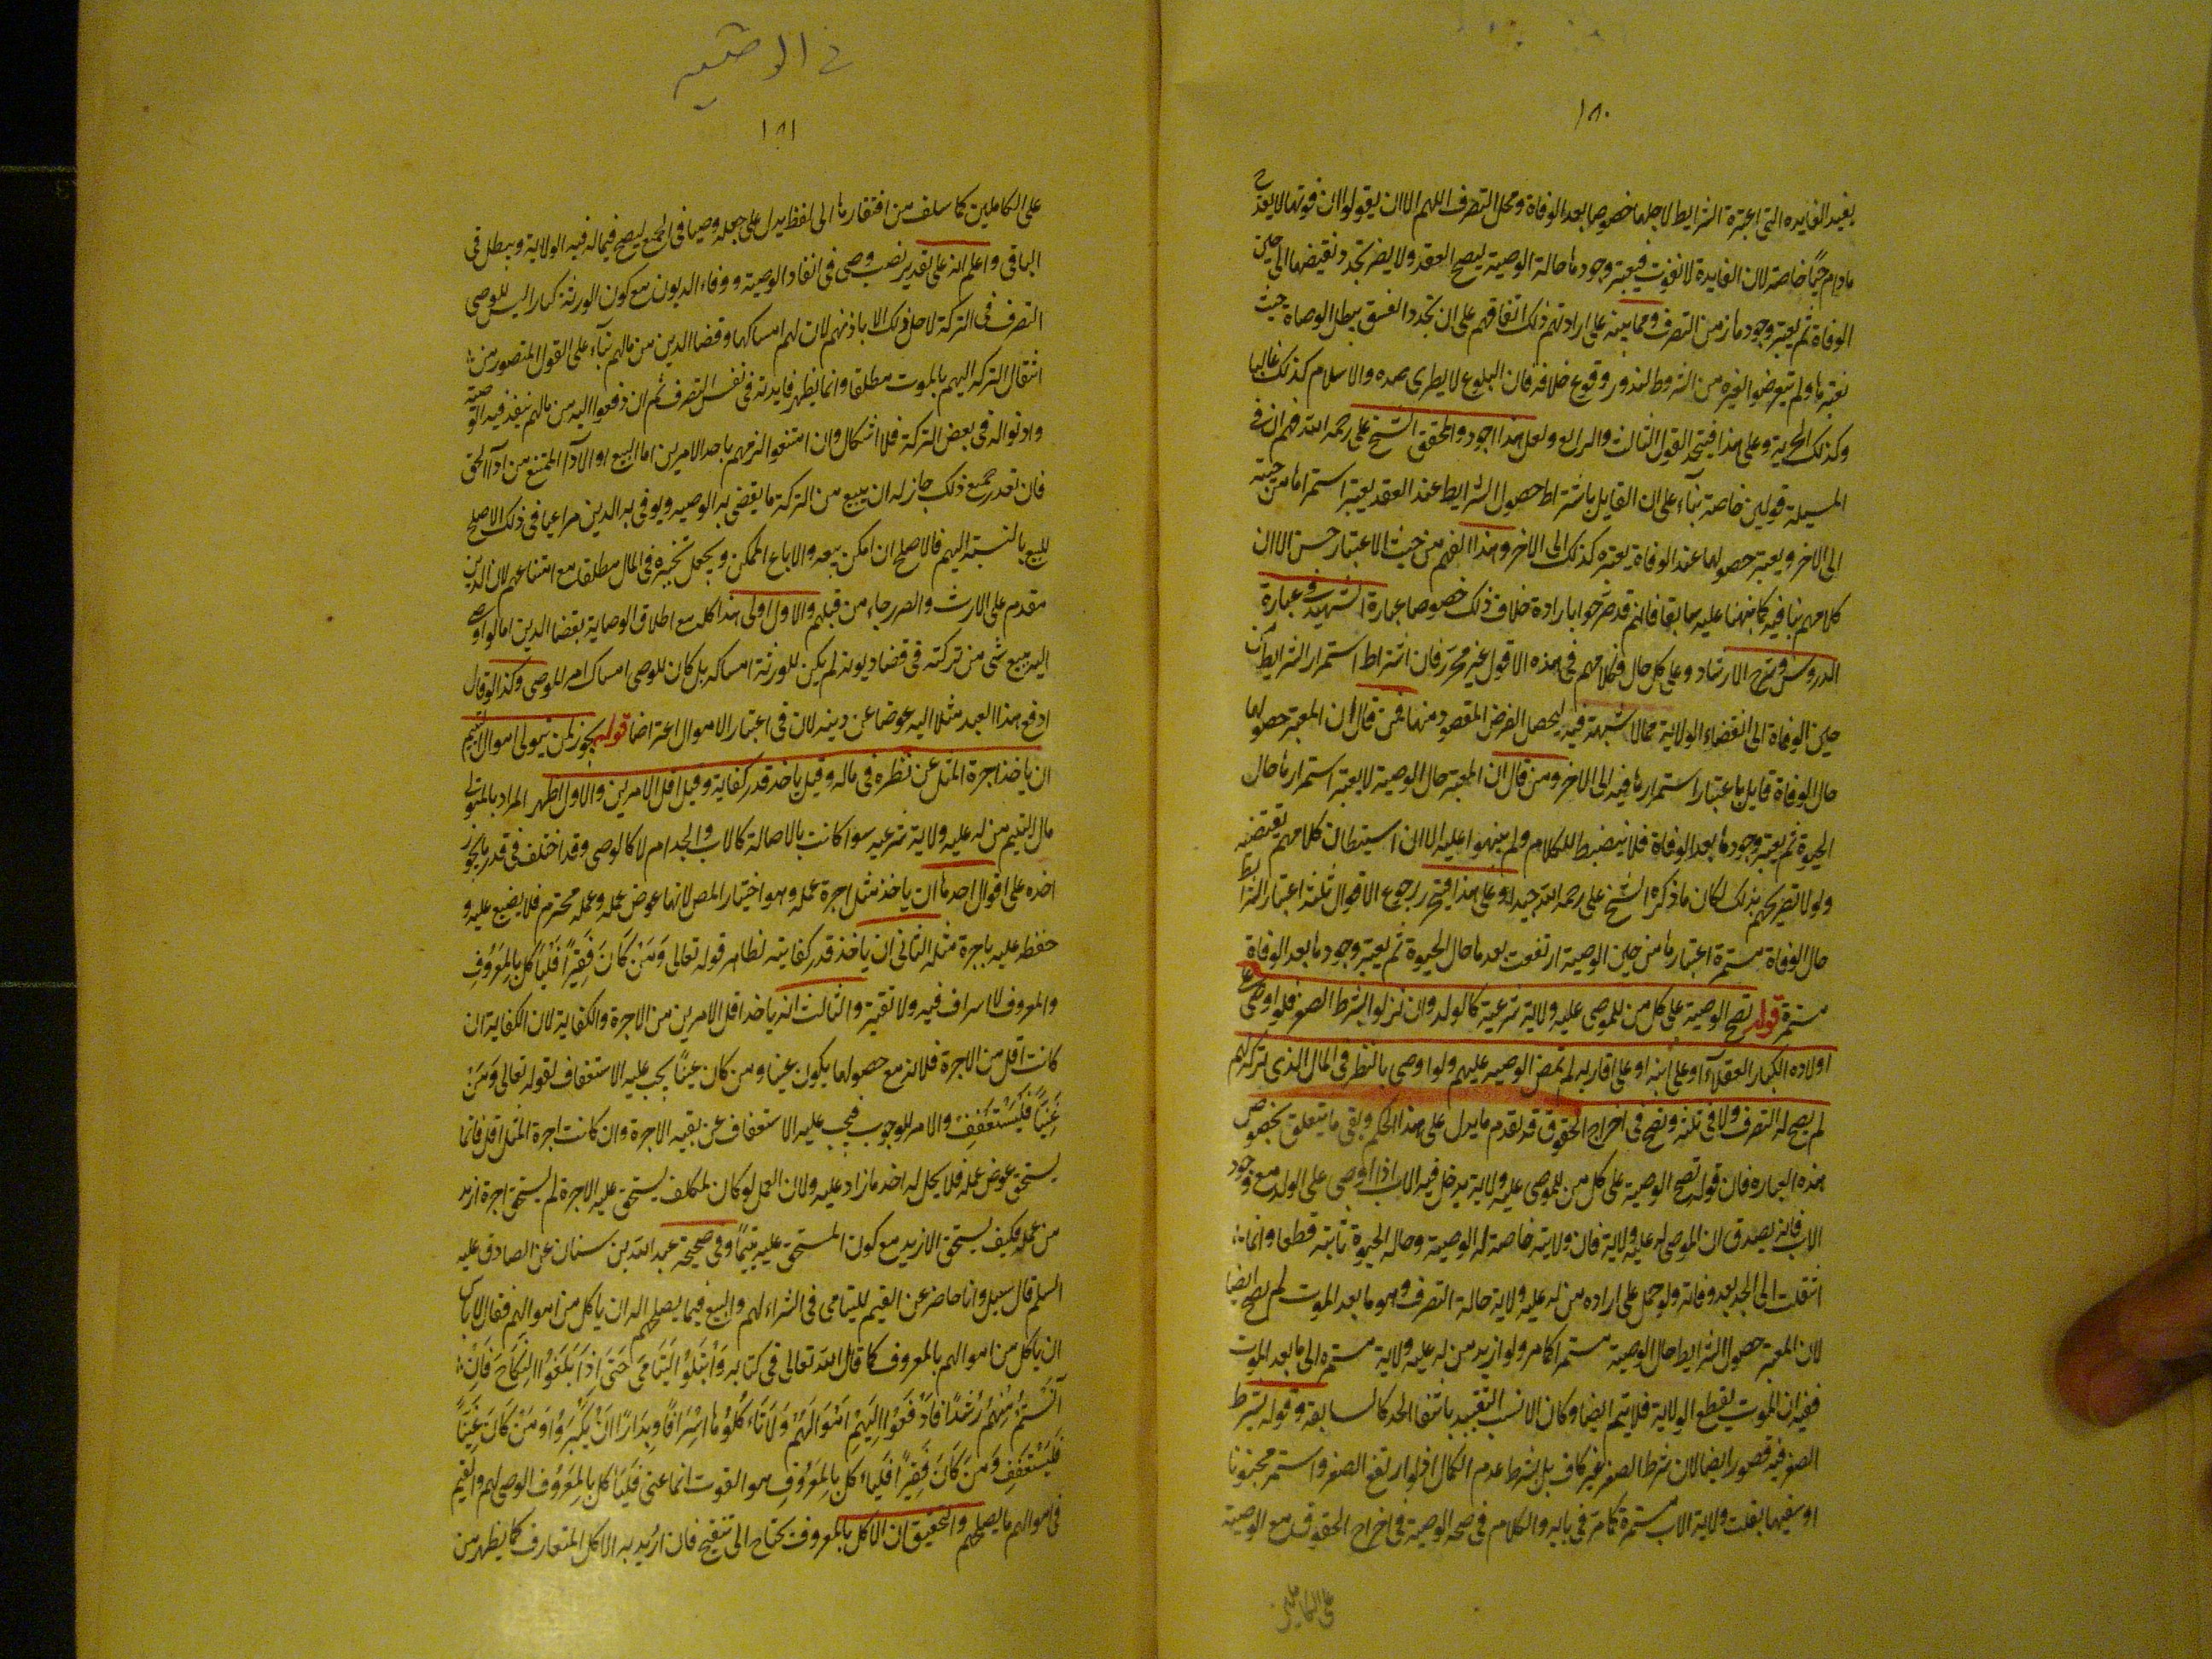 ١٨٠
يفيد الفايده التى اعتبرة الشرايط لاجلها خصوصا بعد الوفاة ومحل التصرف اللهم الا ان يقولوا ان فوتها لا يقدح
مادام حيًّا خاصة لان الفايدة لا تفوت فيعتبر وجودها حالة الوصية ليصح العقد ولا يضر تجدد نقيضها الى حين
الوفاة ثم يعتبر وجودها زمن التصرف ومما ينبه على ارادتهم ذلك اتفاقهم على ان تجدد الفسق يبطل الوصاة حيث
نعتبرها ولم يتعرضوا لغيره من الشروط لندور وقوع خلافه فان البلوغ لا يطرى ضده والاسلام كذلك غالبا
وكذلك الحرية وعلى هذا فيتحد القول الثالث والرابع ولعل هذا اجود والمحقق الشيخ على رحمه الله فهم ان فى
المسيلة قولين خاصة بناء على ان القايل باشتراط حصول الشرايط عند العقد يعتبر استمرارها من حينه
الى الاخر ويعتبر حصولها عند الوفاة يعتبره كذلك الى الاخر وهذا الفهم من حيث الاعتبار حسن الا ان
كلامهم ينافيه كما نبهنا عليه سابقا فانهم قد صرحوا بارادة خلاف ذلك خصوصا عبارة الشهيد فى عبارة
الدروس وشرح الارشاد وعلى كل حال فكلامهم فى هذه الاقول غير محرر فان اشتراط استمرار الشرايط من
حين الوفاة الى انقضاء الولاية مما لا شبهة فيه ليحصل الغرض المقصود منها فمن قال ان المعتبر حصولها
حال الوفاة قايل باعتبار استمرارها فيه الى الاخر ومن قال ان المعتبر حال الوصية لا يعتبر استمرارها حال
الحيوة ثم يعتبر وجودها بعد الوفاة فلا ينضبط للكلام ولم ينبهوا عليه الا ان استبطان كلامهم يقتضيه
ولولا تصريحهم بذلك لكان ما ذكره الشيخ على رحمه الله جيدا وعلى هذا فيتحرر رجوع الاقوال ثلثة اعتبار الشرايط
حال الوفاة مستمرة اعتبارها من حين الوصية ارتفعت بعدها حال الحيوة ثم يعتبر وجودها بعد الوفاة
مستمرة قوله تصح الوصية على كل من للموصى عليه ولاية شرعية كالولد وان نزلوا بشرط الصغر فلو اوصى على
اولاده الكبار العقلاء او على ابنه او على اقاربه لم تمض الوصيه عليهم ولو اوصى بالنظر فى المال الذى تركه لهم
لم يصح له التصرف ولا فى ثلثه وتصح فى اخراج الحقوق قد تقدم ما يدل على هذا الحكم وبقى ما يتعلق بخصوص
هذه العباره فان قوله تصح الوصية على كل من للموصى عليه ولاية يدخل فيه الاب اذا اوصى على الولد مع وجود
الاب فانه يصدق ان الموصى له عليه ولاية فان ولايته خاصة له الوصية وحاله الحيوة ثابتة قطعا وانما
انتقلت الى الجد بعد وفاته ولو حمل على اراده من له عليه ولاية حالة التصرف وهو ما بعد الموت لم يصح ايضا
لان المعتبر حصول الشرايط حال الوصية مستمرا كما مر ولو اريد من له عليه ولاية مستمره الى ما بعد الموت
ففيه ان الموت يقطع الولاية فلا يتم ايضا وكان الانسب التقييد بانتفا الجد كالسابعة وقوله بشرط
الصغر فيه قصور ايضا لان شرط الصغر غير كاف بل بشرط عدم الكمال اذ لو ارتفع الصغر واستمر مجنونا
او سفيها بقيت ولاية الاب مستمرة كما مر فى بابه والكلام فى صحة الوصية فى اخراج الحقوق مع الوصية
على الكاملين
فى الوصية
١٨١
على الكاملين كما سلف من افتقارها الى لفظ يدل على جعله وصيا فى الجميع ليصح فيما له فيه الولاية ويبطل فى
الباقى واعلم انه على تقدير نصب وصى فى انفاد الوصية ووفاء الديون مع كون الورثة كبارا ليس للوصى
التصرف فى التركة لاجل ذلك الا باذنهم لان لهم امساكها وقضا الدين من مالهم بناء على القول المتصور من
انتقال التركه اليهم بالموت مطلقا وانما يظهر فايدته فى نفس التصرف ثم ان دفعوا اليه من مالهم ينفذ فيه الوصية
واذنوا له فى بعض التركة فلا اشكال وان امتنعوا الزمهم باحد الامرين اما البيع او الآدا الممتنع من ادآ الحق
فان تعذر جميع ذلك جاز له ان يبيع من التركة ما يقضى به الوصيه ويوفى به الدين مراعيا فى ذلك الاصلح
للبيع بالنسبة اليهم فالاصلح ان امكن بيعه والا باع الممكن ويحتمل تخييره فى المال مطلقا مع امتناعهم لان الدين
مقدم على الارث والضرر جاء من قبلهم والاول اولى هذا كله مع اطلاق الوصاية بقضا الدين اما لو اوصى
اليه ببيع شى من تركته فى قضا ديونه لم يكن للورثة امساكه بل كان للوصى امساك امر للوصى وكذا لو قال
ادفع هذا العبد مثلا اليه عوضا عن دينه لان فى اعتبار الاموال اعتراضا قوله يجوز لمن يتولى اموال اليتيم
ان ياخذ اجرة المثل عن نظره فى ماله وقيل ياخذ قدر كفاية وقيل اقل الامرين والاول اظهر المراد بالمتولى
مال اليتيم من له عليه ولاية شرعيه سوا كانت بالاصالة كالاب والجد ام لا كالوصى وقد اختلف فى قدر ما يجوز
اخذه على اقوال احدها ان ياخذ مثل اجرة عمله وهو اختيار المص لانها عوض عمله وعمله محترم فلا يضيع عليه و
حفظه عليه باجرة مثله الثانى ان ياخذ قدر كفايته لظاهر قوله تعالى وَمَنْ كَانَ فَقِيرًا فَلْيَأكُلْ بِالْمَعْرُوفِ
والمعروف لا اسراف فيه ولا تقتير والثالث انه ياخذ اقل الامرين من الاجرة والكفاية لان الكفاية ان
كانت اقل من الاجرة فلانه مع حصولها يكون غنيا ومن كان غنيًا يجب عليه الاستعفاف لقوله تعالى وَمَنْ
غَنِيًّا فَلْيَسْتَعْفِفْ والامر للوجوب فيجب عليه الاستعفاف عن بقيه الاجرة وان كانت اجرة المثل اقل فانما
يستحق عوض عمله فلا يحل له اخذ ما زاد عليه ولان العمل لو كان لمكلف يستحق عليه الاجرة لم يستحق اجرة ازيد
من عمله فكيف يستحق الازيد مع كون المستحق عليه يتيمًا وفى صحيحة عبد الله بن سنان عن الصادق عليه
السلم قال سيل وانا حاضر عن القيم لليتامى فى الشراء لهم والبيع فيما يصلحهم اله ان ياكل من اموالهم فقال لا باس
ان ياكل من اموالهم بالمعروف كما قال الله تعالى فى كتابه وَابْتَلُوا الْيَتَامَى حَتَّى اِذَا بَلَغُوا النِّكَاحَ فَاِنْ
آنَسْتُمْ مِنْهُمْ رُشْدًا فَادْفَعُوا اِلَيْهِمْ اَمْوَالَهُمْ وَلَا تَاْكُلُوهَا اِسْرَافًا وَبِدَارًا اَنْ يَكْبَرُوا وَمَنْ كَانَ غَنِيًّا
فَلْيَسْتَعْفِفْ وَمَنْ كَانَ فَقِيرًا فَلْيَاْكُلْ بِالْمَعْرُوفِ هو القوت انما عنى فَلْيَأْكُلْ بِالْمَعْرُوفِ الوصى لهم والقيم
فى اموالهم ما يصلحهم والتحقيق ان الاكل بالمعروف يحتاج الى تنقيح فان اريد به الاكل المتعارف كما يظهر من